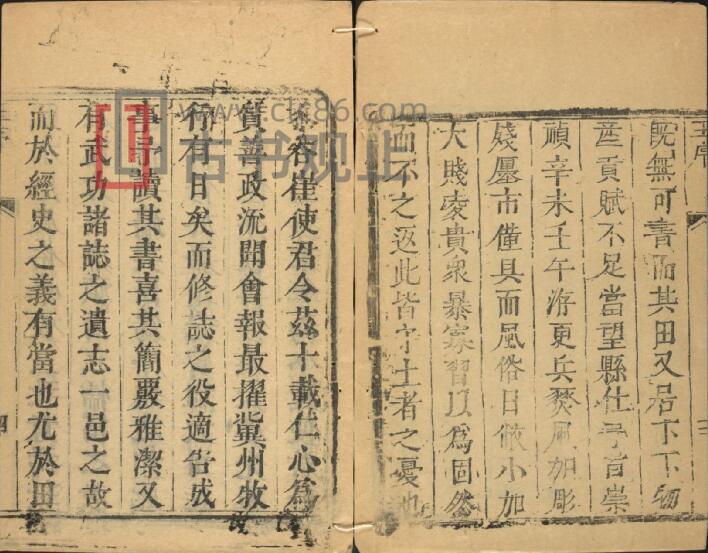 既無可書而其田又居下下物
產貢賦不足當望縣仕子昔崇
禎辛未壬午洊更兵燹風加彫
殘廛市僅具而風俗日敝小加
大賤凌貴衆暴寡習以為固然
而不之返此皆守土者之憂也
崔使君令茲十載仁心為
質善政流聞會報最擢冀州牧
行有日矣而修誌之役適告成
事予讀其書喜其簡覈雅潔又
有武功諸誌之遺志一邑之故
而於經史之義有當也尤於田
www.ct86.com
古书观止